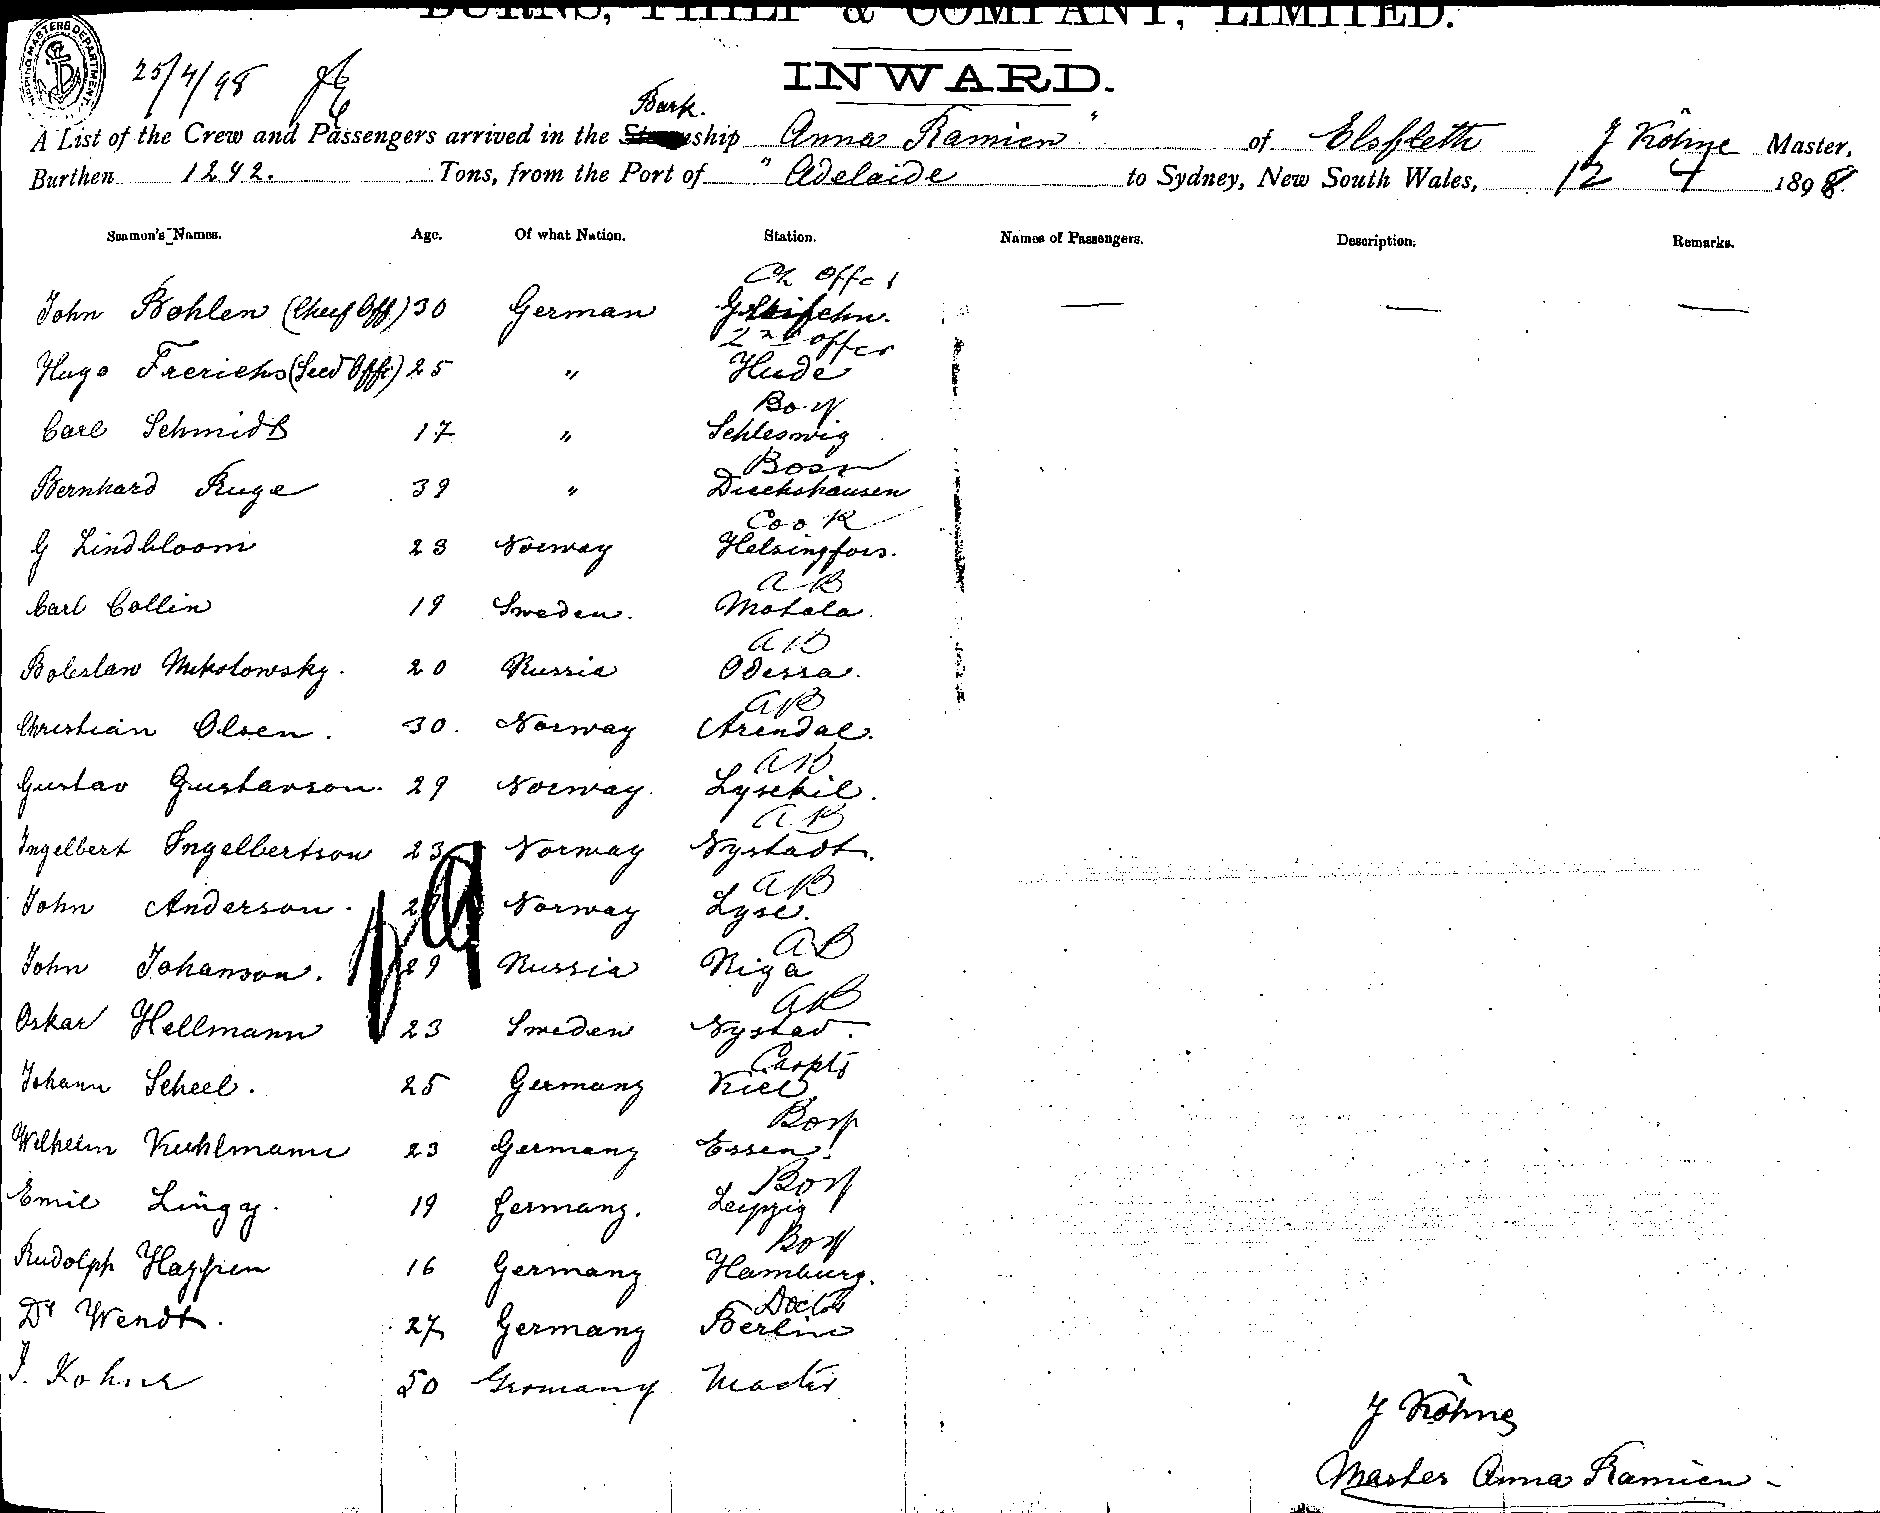 BURNS, PHILP & COMPANY, LIMITED.
INWARD.
25/4/98
Bark.
A List of the Crew and Passengers arrived in the ship "Anna Ramien" of Elsfleth J Köhne Master,
Burthen 1292. Tons, from the Port of Adelaide to Sydney, New South Wales, 12 4 1898.
Seamen's Names. Age. Of what Nation. Station. Names of Passengers. Description. Remarks.
Ch Offcr
John Bohlen (Cheif Off) 30 German — — —
2nd Offcr
Hugo Frerichs (Secd Offr) 25 " Hude
Boy
Carl Schmidt 17 " Schleswig
Bosn
Bernhard Ruge 39 " Dieckshausen
Cook
G Lindbloom 23 Norway Helsingfors.
AB
Carl Collin 19 Sweden. Motala.
AB
Boleslaw Mikolowsky. 20 Russia Odessa.
AB
Christian Olsen. 30. Norway Arendal.
AB
Gustav Gustavson. 29 Norway. Lysekil.
AB
Ingelbert Ingelbertson 23 Norway Nystadt.
AB
John Anderson. Norway Lyse.
AB
John Johanson. 29 Russia Riga
AB
Oskar Hellmann 23 Sweden Nystad.
Carptr
Johann Scheel. 25 Germany Kiel
Boy
Wilhelm Kuhlmann 23 Germany Essen.
Boy
Emil 19 Germany. Leipzig
Boy
Rudolph 16 Germany Hamburg.
Doctor
Dr Wendt. 27 Germany Berlin
J. Kohne 50 Germany Master
J Köhne
Master Anna Ramien